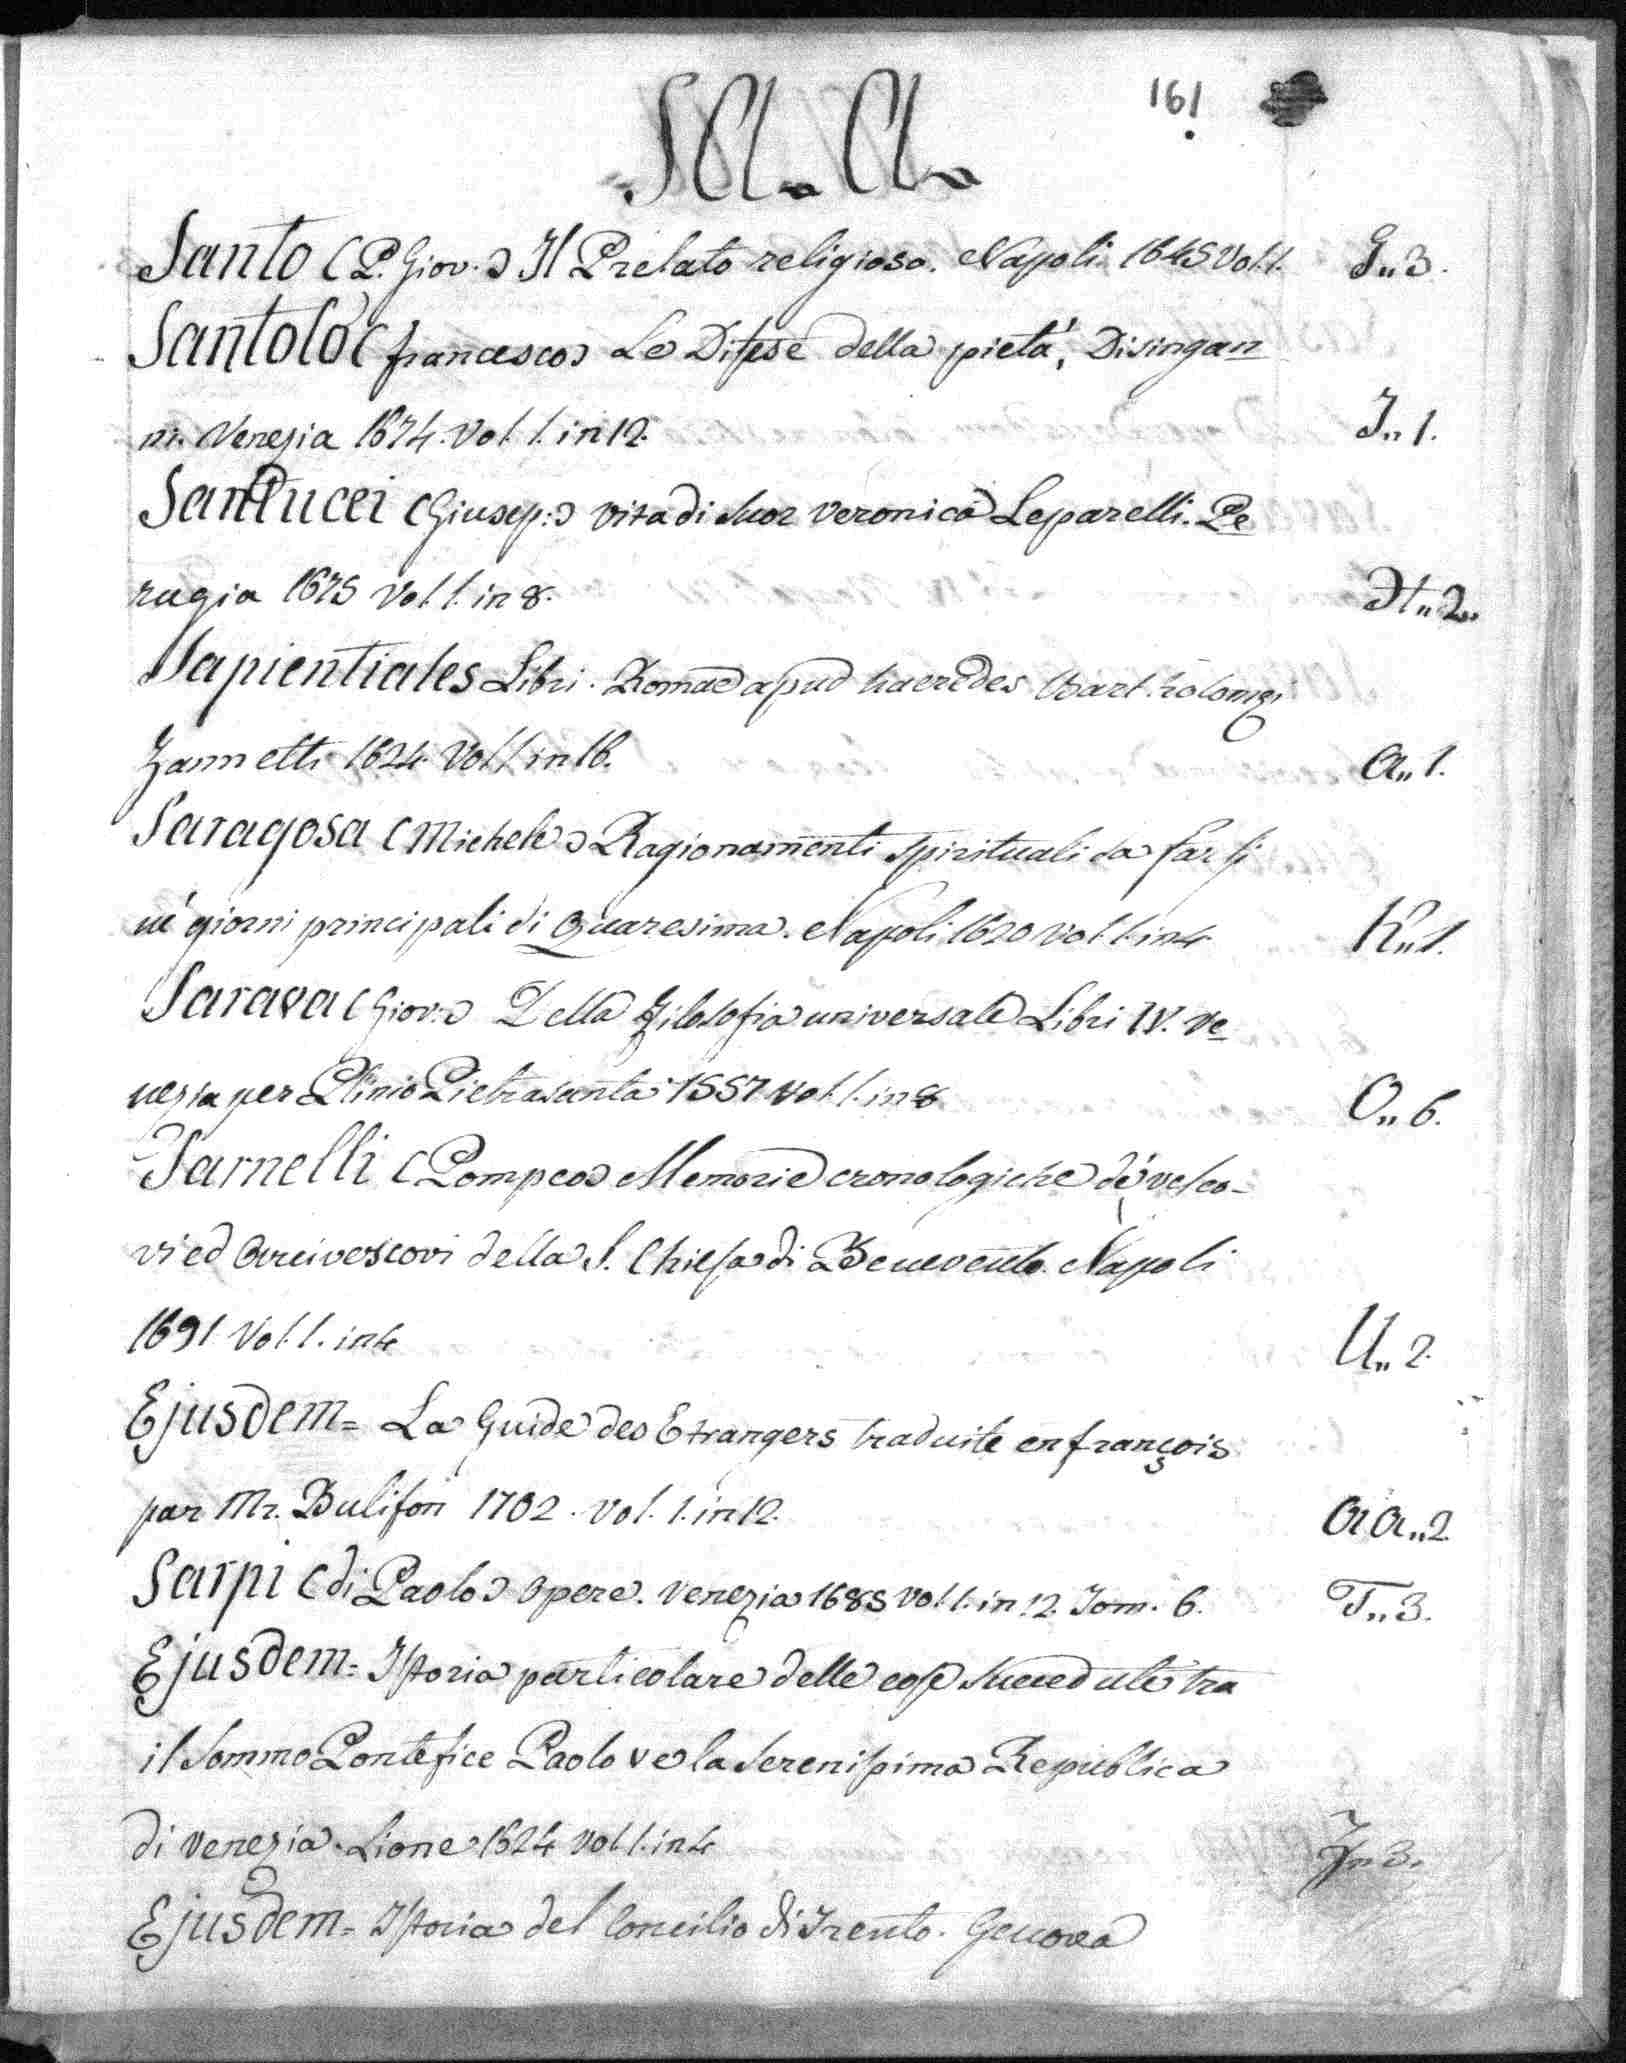 161
SA. A.
Santo (P. Giov.) Il Prelato religioso. Napoli 1645 Vol. 1. G.. 3.
Santolo (francesco) Le Difese della pietà, Disingan
ni. Venezia 1674. Vol. 1. in 12. I.. 1.
Santucci (Giusep:) vita di Suor Veronica Leparelli. Pe
rugia 1675 Vol. 1. in 8. H.. 2..
Sapientiales Libri. Romae apud haeredes Bartholomei
Zannetti 1624 Vol 1 in 16. A.. 1.
Saragosa (Michele) Ragionamenti Spirituali da farsi
ne' giorni principali di Quaresima. Napoli 1620 vol. 1. in 4. K.. 1.
Sarava (Giov:) Della Filosofia universale Libri IV. Ve
nezia per Plinio Pietrasanta 1557 vol. 1. in 8 O.. 6.
Sarnelli (Pompeo) Memorie cronologiche de' vesco-
vi ed Arcivescovi della S. Chiesa di Benevento. Napoli
1691 Vol. 1. in 4 U.. 2.
Ejusdem = La Guide des Etrangers traduite en françois
par Mr. Bulifon 1702. Vol. 1. in 12. AA.. 2
Sarpi (di Paolo) Opere. Venezia 1685 Vol 1. in 12. Tom. 6. T.. 3.
Ejusdem = Istoria particolare delle cose succedute tra
il Sommo Pontefice Paolo V e la Serenissima Republica
di Venezia. Lione 1624 Vol 1. in 4 3.
Ejusdem = Istoria del Concilio di Trento. Genova